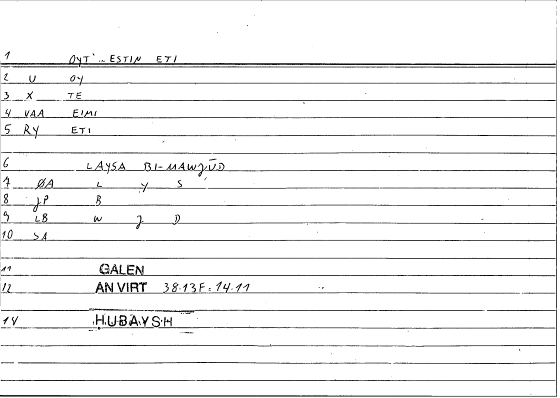 1 OYT' .. ESTIN ETI
2 U OY
3 X TE
4 VAA EIMI
5 RY ETI
6 LAYSA BI-MAWJŪD
7 ØA L Y S
8 JP B
9 LB W J D
10 SA
11 GALEN
12 AN VIRT 38.13F : 14.11
14 HUBAYSH